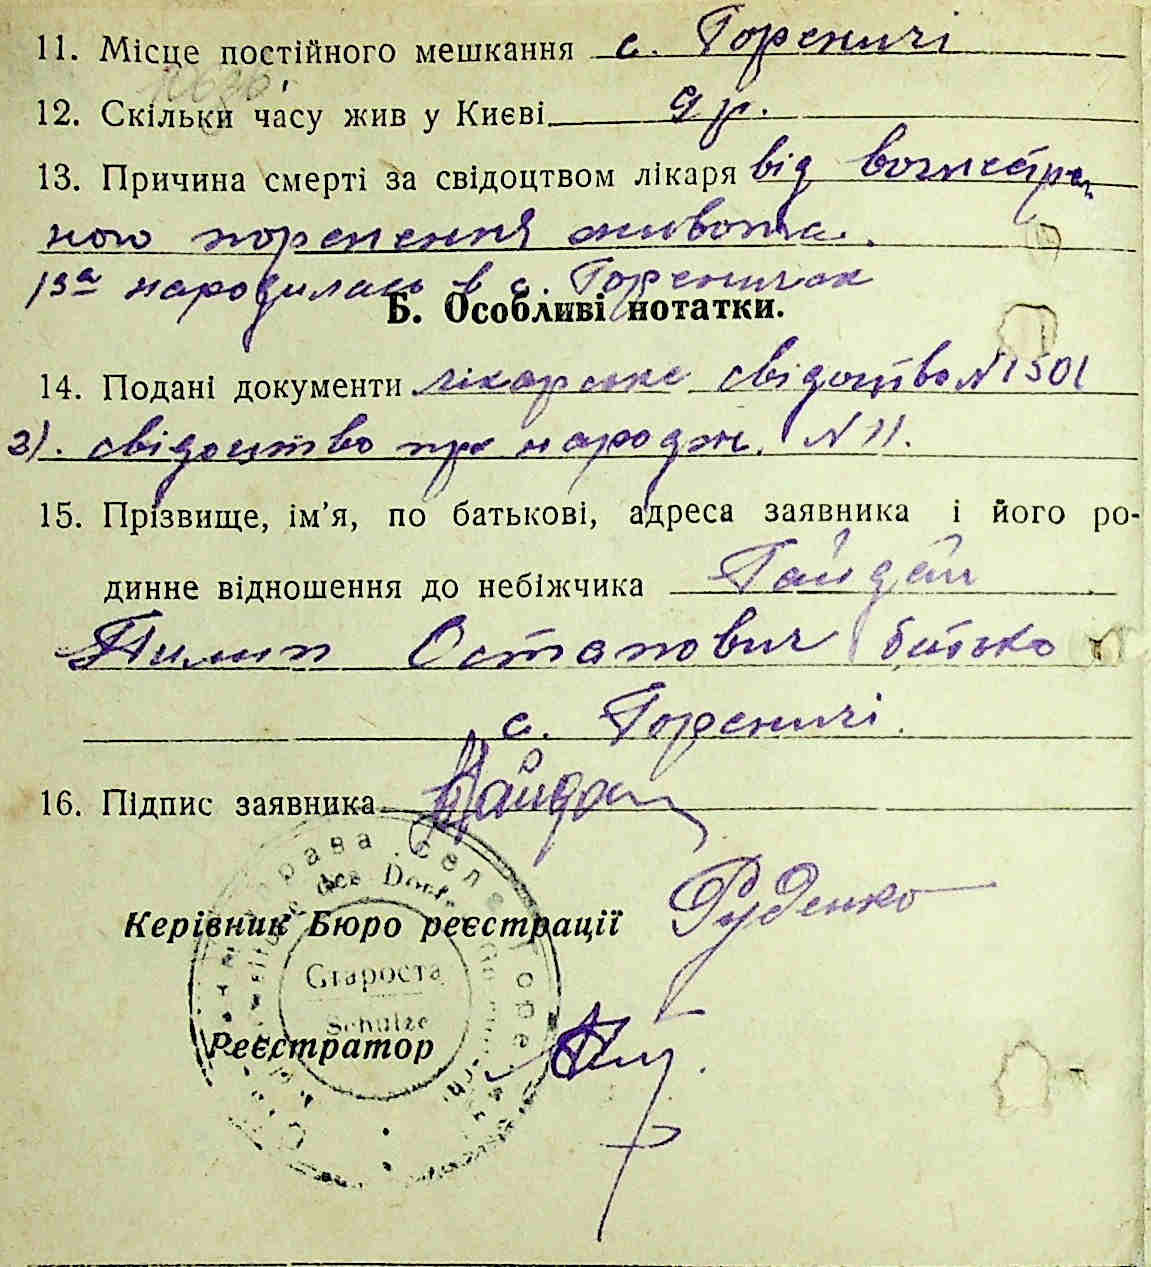 11. Місце постійного мешкання с. Гореничі
12. Скільки часу жив у Києві 9 р.
13. Причина смерті за свідоцтвом лікаря від вогнестрель
ного поренення живота.
13а народилась в с. Гореничах
Б. Особливі нотатки.
14. Подані документи лікарське свідоцтво №1501
2). свідоцтво про народж. №11.
15. Прізвище, ім'я, по батькові, адреса заявника і його ро-
динне відношення до небіжчика Гайдай
Пилип Остапович батько
с. Гореничі.
16. Підпис заявника Гайдай
Керівник Бюро реєстрації Руденко
Староста
Schulze
Реєстратор